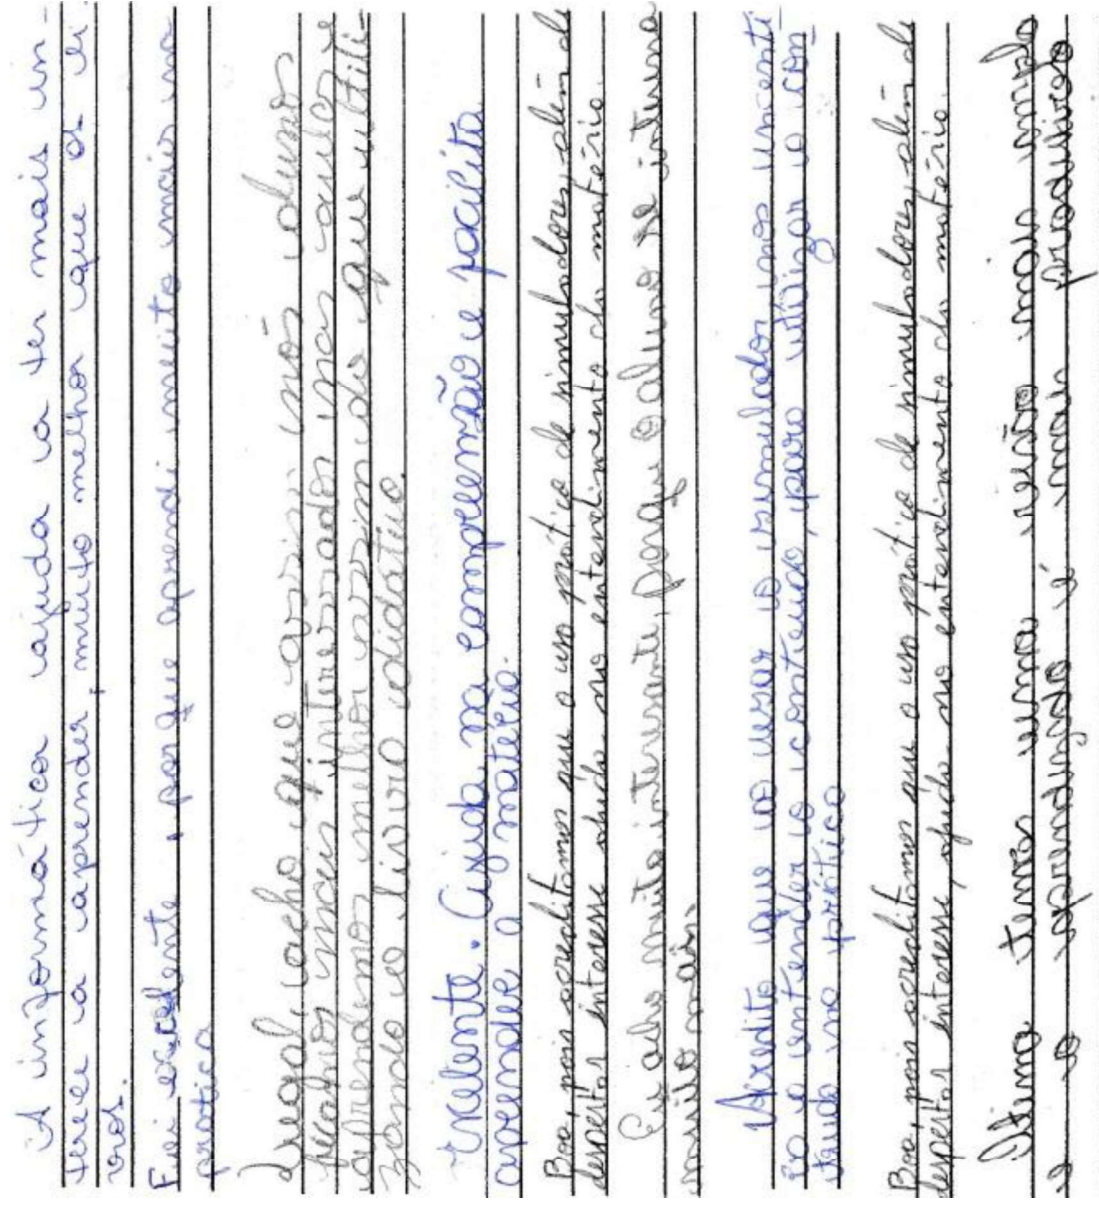 A informática ajuda a ter mais in-
terece a aprender, muito melhor que os li-
vros.
Foi excelente, porque aprendi muito mais na
pratica
Legal, acho que assim nós alunos
ficamos mais interessados nas aulas e
aprendemos melhor assim do que utili-
zando o livro didatico.
Exelente. Ajuda na compreensão e facilita
aprender a materia.
Boa, pois acreditamos que o uso prático de simuladores, além de
despertar interesse ajuda no entendimento da matéria.
Eu acho muito interesante, porque o aluno se interesa
muito mais.
Acredito que ao usar o simulador nos incenti
va a entender o conteudo, para utilizar o con-
teudo na prática
Boa, pois acreditamos que o uso prático de simuladores, além de
despertar interesse ajuda no entendimento da matéria.
Otima temos uma visão mais ampla
e o aprendizado é mais produtivo